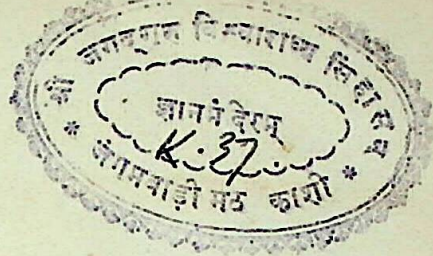 श्री जगद्गुरु विश्वाराध्य सिंहासन
ज्ञानमंदिरम्
K.37
* जंगमवाडी मठ काशी *